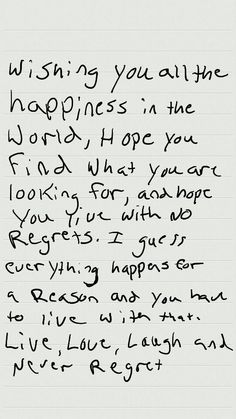 Wishing you all the
happiness in the
World, Hope you
Find What you are
looking for, and hope
You live with No
Regrets. I guess
everything happens for
a Reason and you have
to live with that.
Live, Love, Laugh and
Never Regret